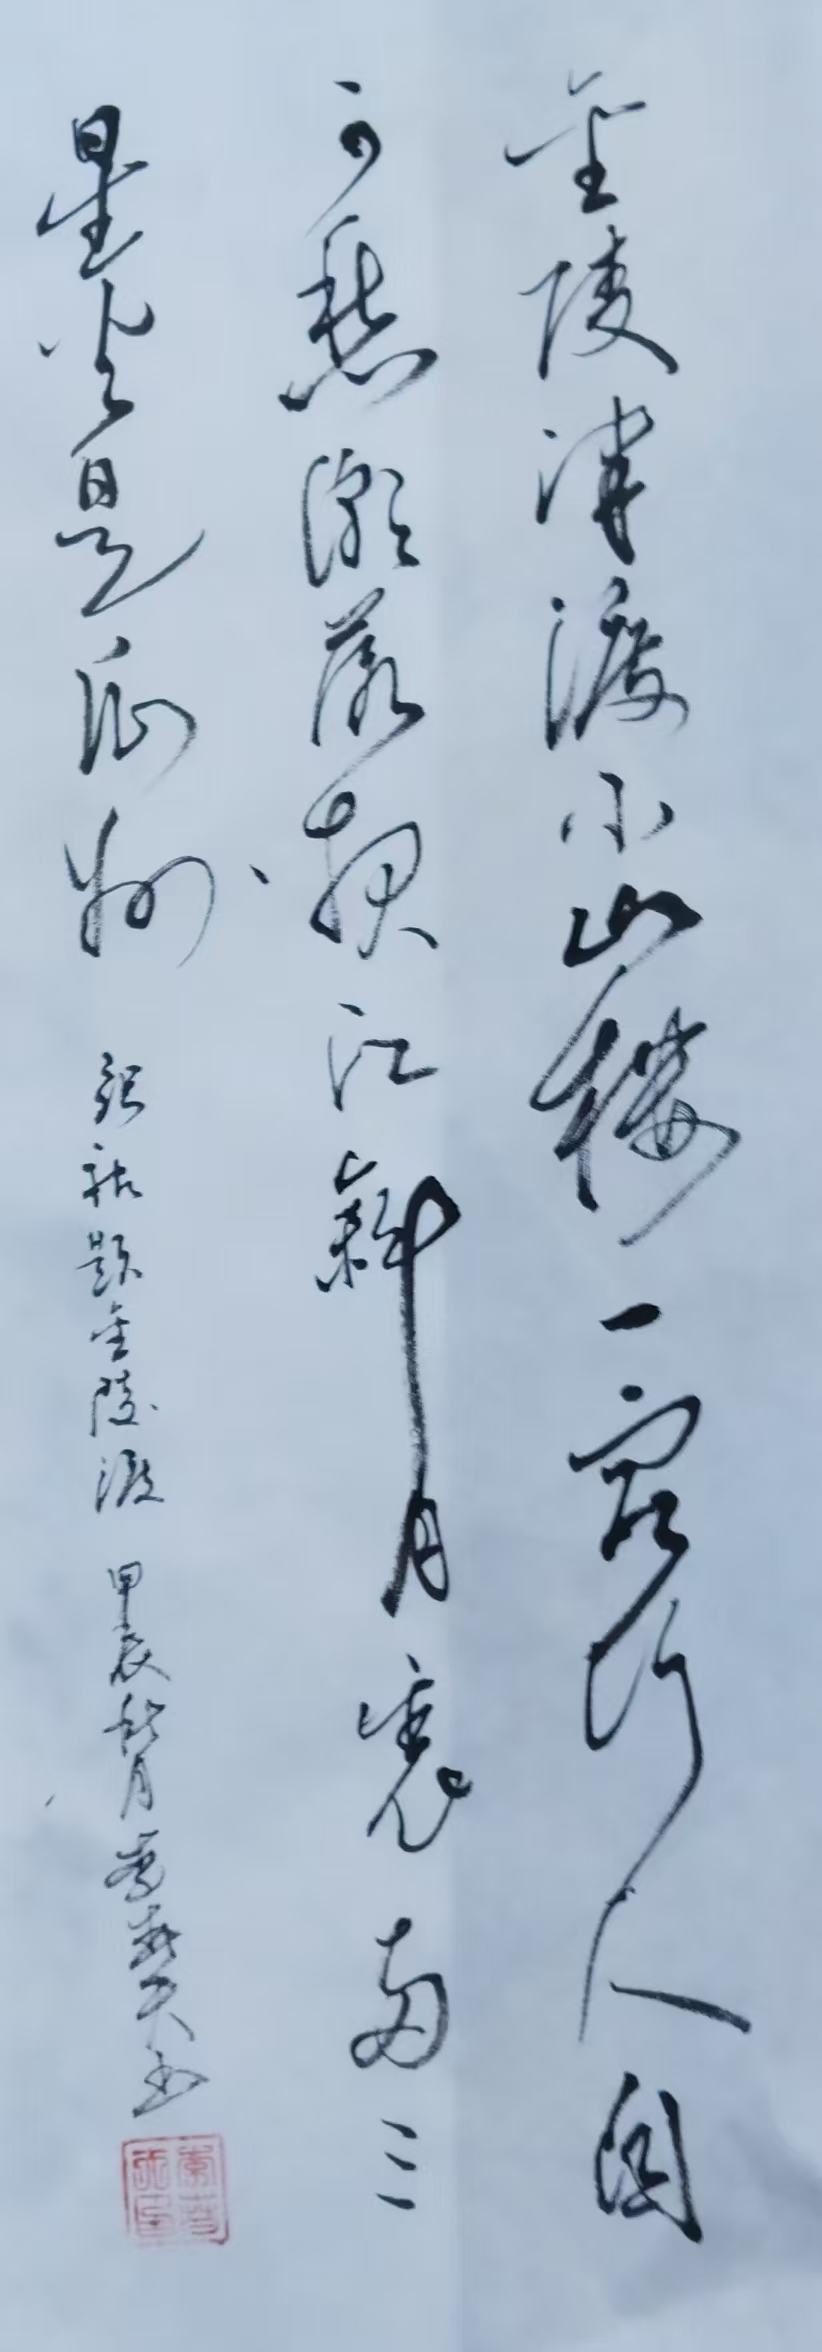 金陵津渡小山樓一宿行人自
可愁潮落夜江斜月裏兩三
星火是瓜州 張祜題金陵渡 甲辰秋月 書